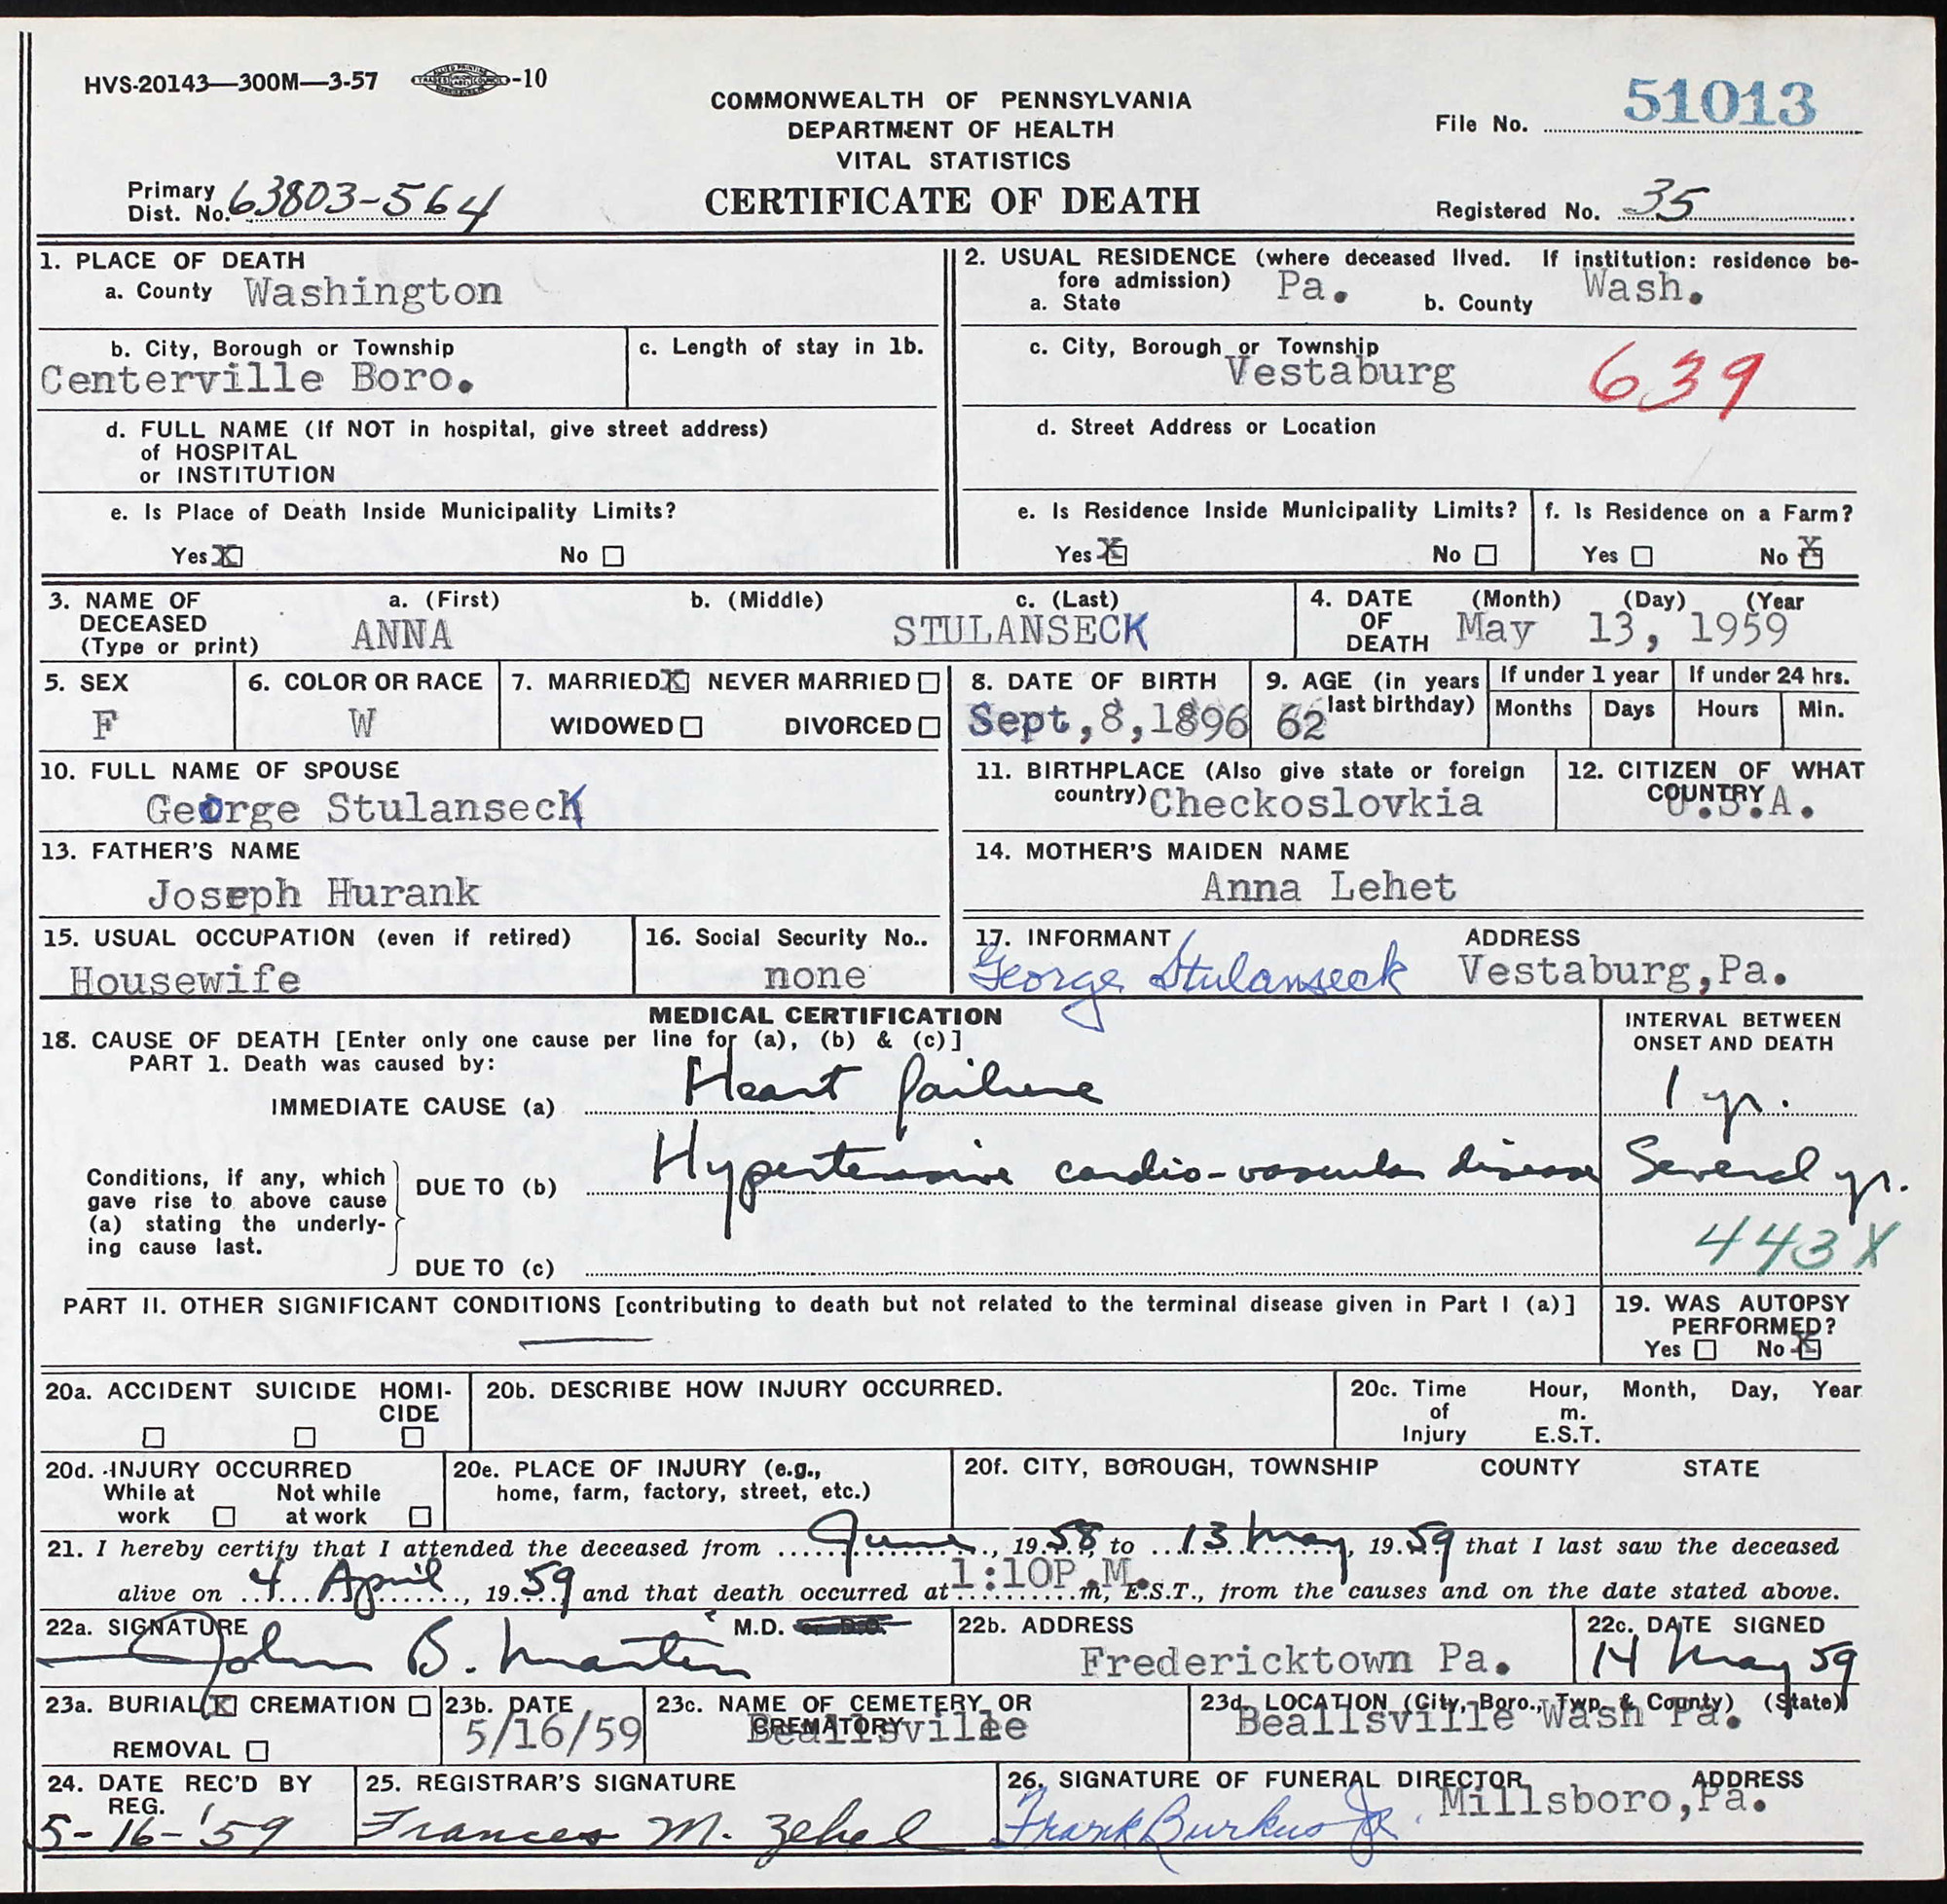 HVS-20143—300M—3-57 -10
COMMONWEALTH OF PENNSYLVANIA
DEPARTMENT OF HEALTH
VITAL STATISTICS
CERTIFICATE OF DEATH
File No. 51013
Primary
Dist. No. 63803-564
Registered No. 35
1. PLACE OF DEATH
a. County Washington
b. City, Borough or Township
Centerville Boro.
c. Length of stay in 1b.
d. FULL NAME (If NOT in hospital, give street address)
of HOSPITAL
or INSTITUTION
e. Is Place of Death Inside Municipality Limits?
Yes X No
2. USUAL RESIDENCE (where deceased lived. If institution: residence be-
fore admission)
a. State Pa. b. County Wash.
c. City, Borough or Township
Vestaburg 639
d. Street Address or Location
e. Is Residence Inside Municipality Limits?
Yes X No
f. Is Residence on a Farm?
Yes No X
3. NAME OF DECEASED (Type or print)
a. (First) b. (Middle) c. (Last)
ANNA STULANSECK
4. DATE OF DEATH (Month) (Day) (Year
May 13, 1959
5. SEX
F
6. COLOR OR RACE
W
7. MARRIED X NEVER MARRIED
WIDOWED DIVORCED
8. DATE OF BIRTH
Sept,8,1896
9. AGE (in years last birthday)
62
If under 1 year
Months Days
If under 24 hrs.
Hours Min.
10. FULL NAME OF SPOUSE
George Stulanseck
11. BIRTHPLACE (Also give state or foreign
country) Checkoslovkia
12. CITIZEN OF WHAT
COUNTRY U.S.A.
13. FATHER'S NAME
Joseph Hurank
14. MOTHER'S MAIDEN NAME
Anna Lehet
15. USUAL OCCUPATION (even if retired)
Housewife
16. Social Security No..
none
17. INFORMANT ADDRESS
George Stulanseck Vestaburg,Pa.
MEDICAL CERTIFICATION
18. CAUSE OF DEATH [Enter only one cause per line for (a), (b) & (c)]
PART 1. Death was caused by:
INTERVAL BETWEEN
ONSET AND DEATH
IMMEDIATE CAUSE (a) Heart failure 1 yr.
Conditions, if any, which
gave rise to above cause
(a) stating the underly-
ing cause last.
DUE TO (b) Hypertensive cardio-vascular disease Several yr.
443X
DUE TO (c)
PART II. OTHER SIGNIFICANT CONDITIONS [contributing to death but not related to the terminal disease given in Part I (a)]
19. WAS AUTOPSY
PERFORMED?
Yes No X
20a. ACCIDENT SUICIDE HOMI-
CIDE
20b. DESCRIBE HOW INJURY OCCURRED.
20c. Time Hour, Month, Day, Year
of m.
Injury E.S.T.
20d. INJURY OCCURRED
While at Not while
work at work
20e. PLACE OF INJURY (e.g.,
home, farm, factory, street, etc.)
20f. CITY, BOROUGH, TOWNSHIP COUNTY STATE
21. I hereby certify that I attended the deceased from June, 1958, to 13 May, 1959 that I last saw the deceased
alive on 4 April, 1959 and that death occurred at 1:10P.M. m, E.S.T., from the causes and on the date stated above.
22a. SIGNATURE M.D. or D.O.
John B. Martin
22b. ADDRESS
Fredericktown Pa.
22c. DATE SIGNED
14 May 59
23a. BURIAL X CREMATION
REMOVAL
23b. DATE
5/16/59
23c. NAME OF CEMETERY OR
CREMATORY
Beallsville
23d. LOCATION (City, Boro., Twp. & County) (State)
Beallsville Wash Pa.
24. DATE REC'D BY
REG.
5-16-'59
25. REGISTRAR'S SIGNATURE
Frances M. Zehel
26. SIGNATURE OF FUNERAL DIRECTOR ADDRESS
Frank Burkus Jr. Millsboro,Pa.